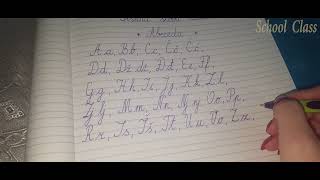 School Class
• Abeceda •
Aa, Bb, Cc, Čč, Ćć,
Dd, Dž dž, Đđ, Ee, Ff,
Gg, Hh, Ii, Jj, Kk, Ll,
Lj lj, Mm, Nn, Nj nj, Oo, Pp,
Rr, Ss, Šš, Tt, Uu, Vv, Zz,